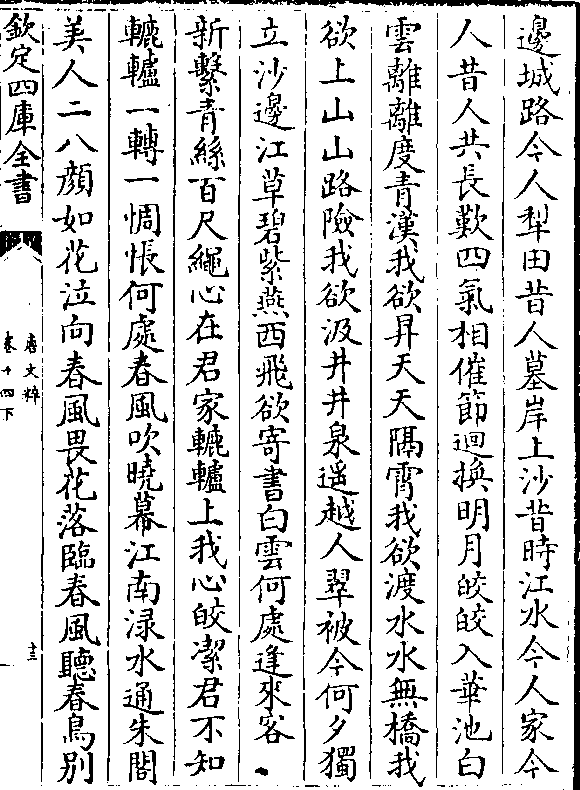 邊城路今人犁田昔人墓岸上沙昔時江水今人家今
人昔人共長歎四氣相催節迴換明月皎皎入華池白
雲離離度青漢我欲昇天天隔霄我欲渡水水無橋我
欲上山山路險我欲汲井井泉遥越人翠被今何夕獨
立沙邊江草碧紫燕西飛欲寄書白雲何處逢來客
新繫青絲百尺繩心在君家轆轤上我心皎潔君不知
轆轤一轉一惆悵何處春風吹曉幕江南渌水通朱閣
美人二八顔如花泣向春風畏花落臨春風聽春鳥别
欽定四庫全書
唐文粹
卷十四下
十三